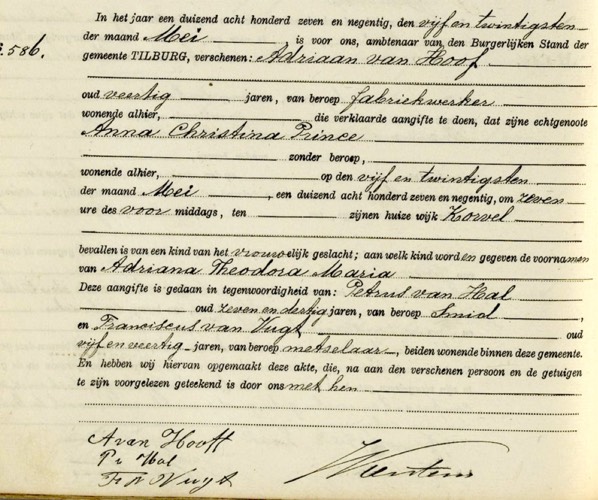 In het jaar een duizend acht honderd zeven en negentig, den vijf en twintigsten
der maand Mei is voor ons, ambtenaar van den Burgerlijken Stand der
586.
gemeente TILBURG, verschenen: Adriaan van Hoof
oud veertig jaren, van beroep fabriekwerker
wonende alhier, die verklaarde aangifte te doen, dat zijne echtgenoote
Anna Christina Prince
zonder beroep,
wonende alhier, op den vijf en twintigsten
der maand Mei, een duizend acht honderd zeven en negentig, om zeven
ure des voor middags, ten zijnen huize wijk Korvel
bevallen is van een kind van het vrouwelijk geslacht; aan welk kind worden gegeven de voornamen
van Adriana Theodora Maria
Deze aangifte is gedaan in tegenwoordigheid van: Petrus van Hal
oud zeven en dertig jaren, van beroep Smid,
en Franciscus van Vugt oud
vijf en veertig jaren, van beroep metselaar, beiden wonende binnen deze gemeente.
En hebben wij hiervan opgemaakt deze akte, die, na aan den verschenen persoon en de getuigen
te zijn voorgelezen geteekend is door ons met hen
A van Hooff
P v Hal
F v Vugt